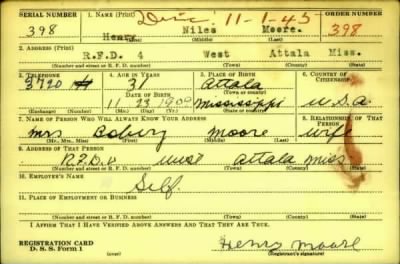 SERIAL NUMBER 1. NAME (Print) Disc. 11-1-45 ORDER NUMBER
398 Henry Niles Moore. 398
(First) (Middle) (Last)
2. ADDRESS (Print)
R.F.D. 4 West Attala Miss.
(Number and street or R. F. D. number) (Town) (County) (State)
3. TELEPHONE 4. AGE IN YEARS 5. PLACE OF BIRTH 6. COUNTRY OF CITIZENSHIP
31 Attala
DATE OF BIRTH (Town or county)
11 23 1909 Mississippi U.S.A.
(Exchange) (Number) (Mo.) (Day) (Yr.) (State or country)
7. NAME OF PERSON WHO WILL ALWAYS KNOW YOUR ADDRESS 8. RELATIONSHIP OF THAT PERSON
Mrs Moore wife
(Mr., Mrs., Miss) (First) (Middle) (Last)
9. ADDRESS OF THAT PERSON
R.F.D. 4 West Attala Miss
(Number and street or R. F. D. number) (Town) (County) (State)
10. EMPLOYER'S NAME
Self.
11. PLACE OF EMPLOYMENT OR BUSINESS
(Number and street or R. F. D. number) (Town) (County) (State)
I AFFIRM THAT I HAVE VERIFIED ABOVE ANSWERS AND THAT THEY ARE TRUE.
REGISTRATION CARD
D. S. S. Form 1 Henry Moore
(Registrant's signature)